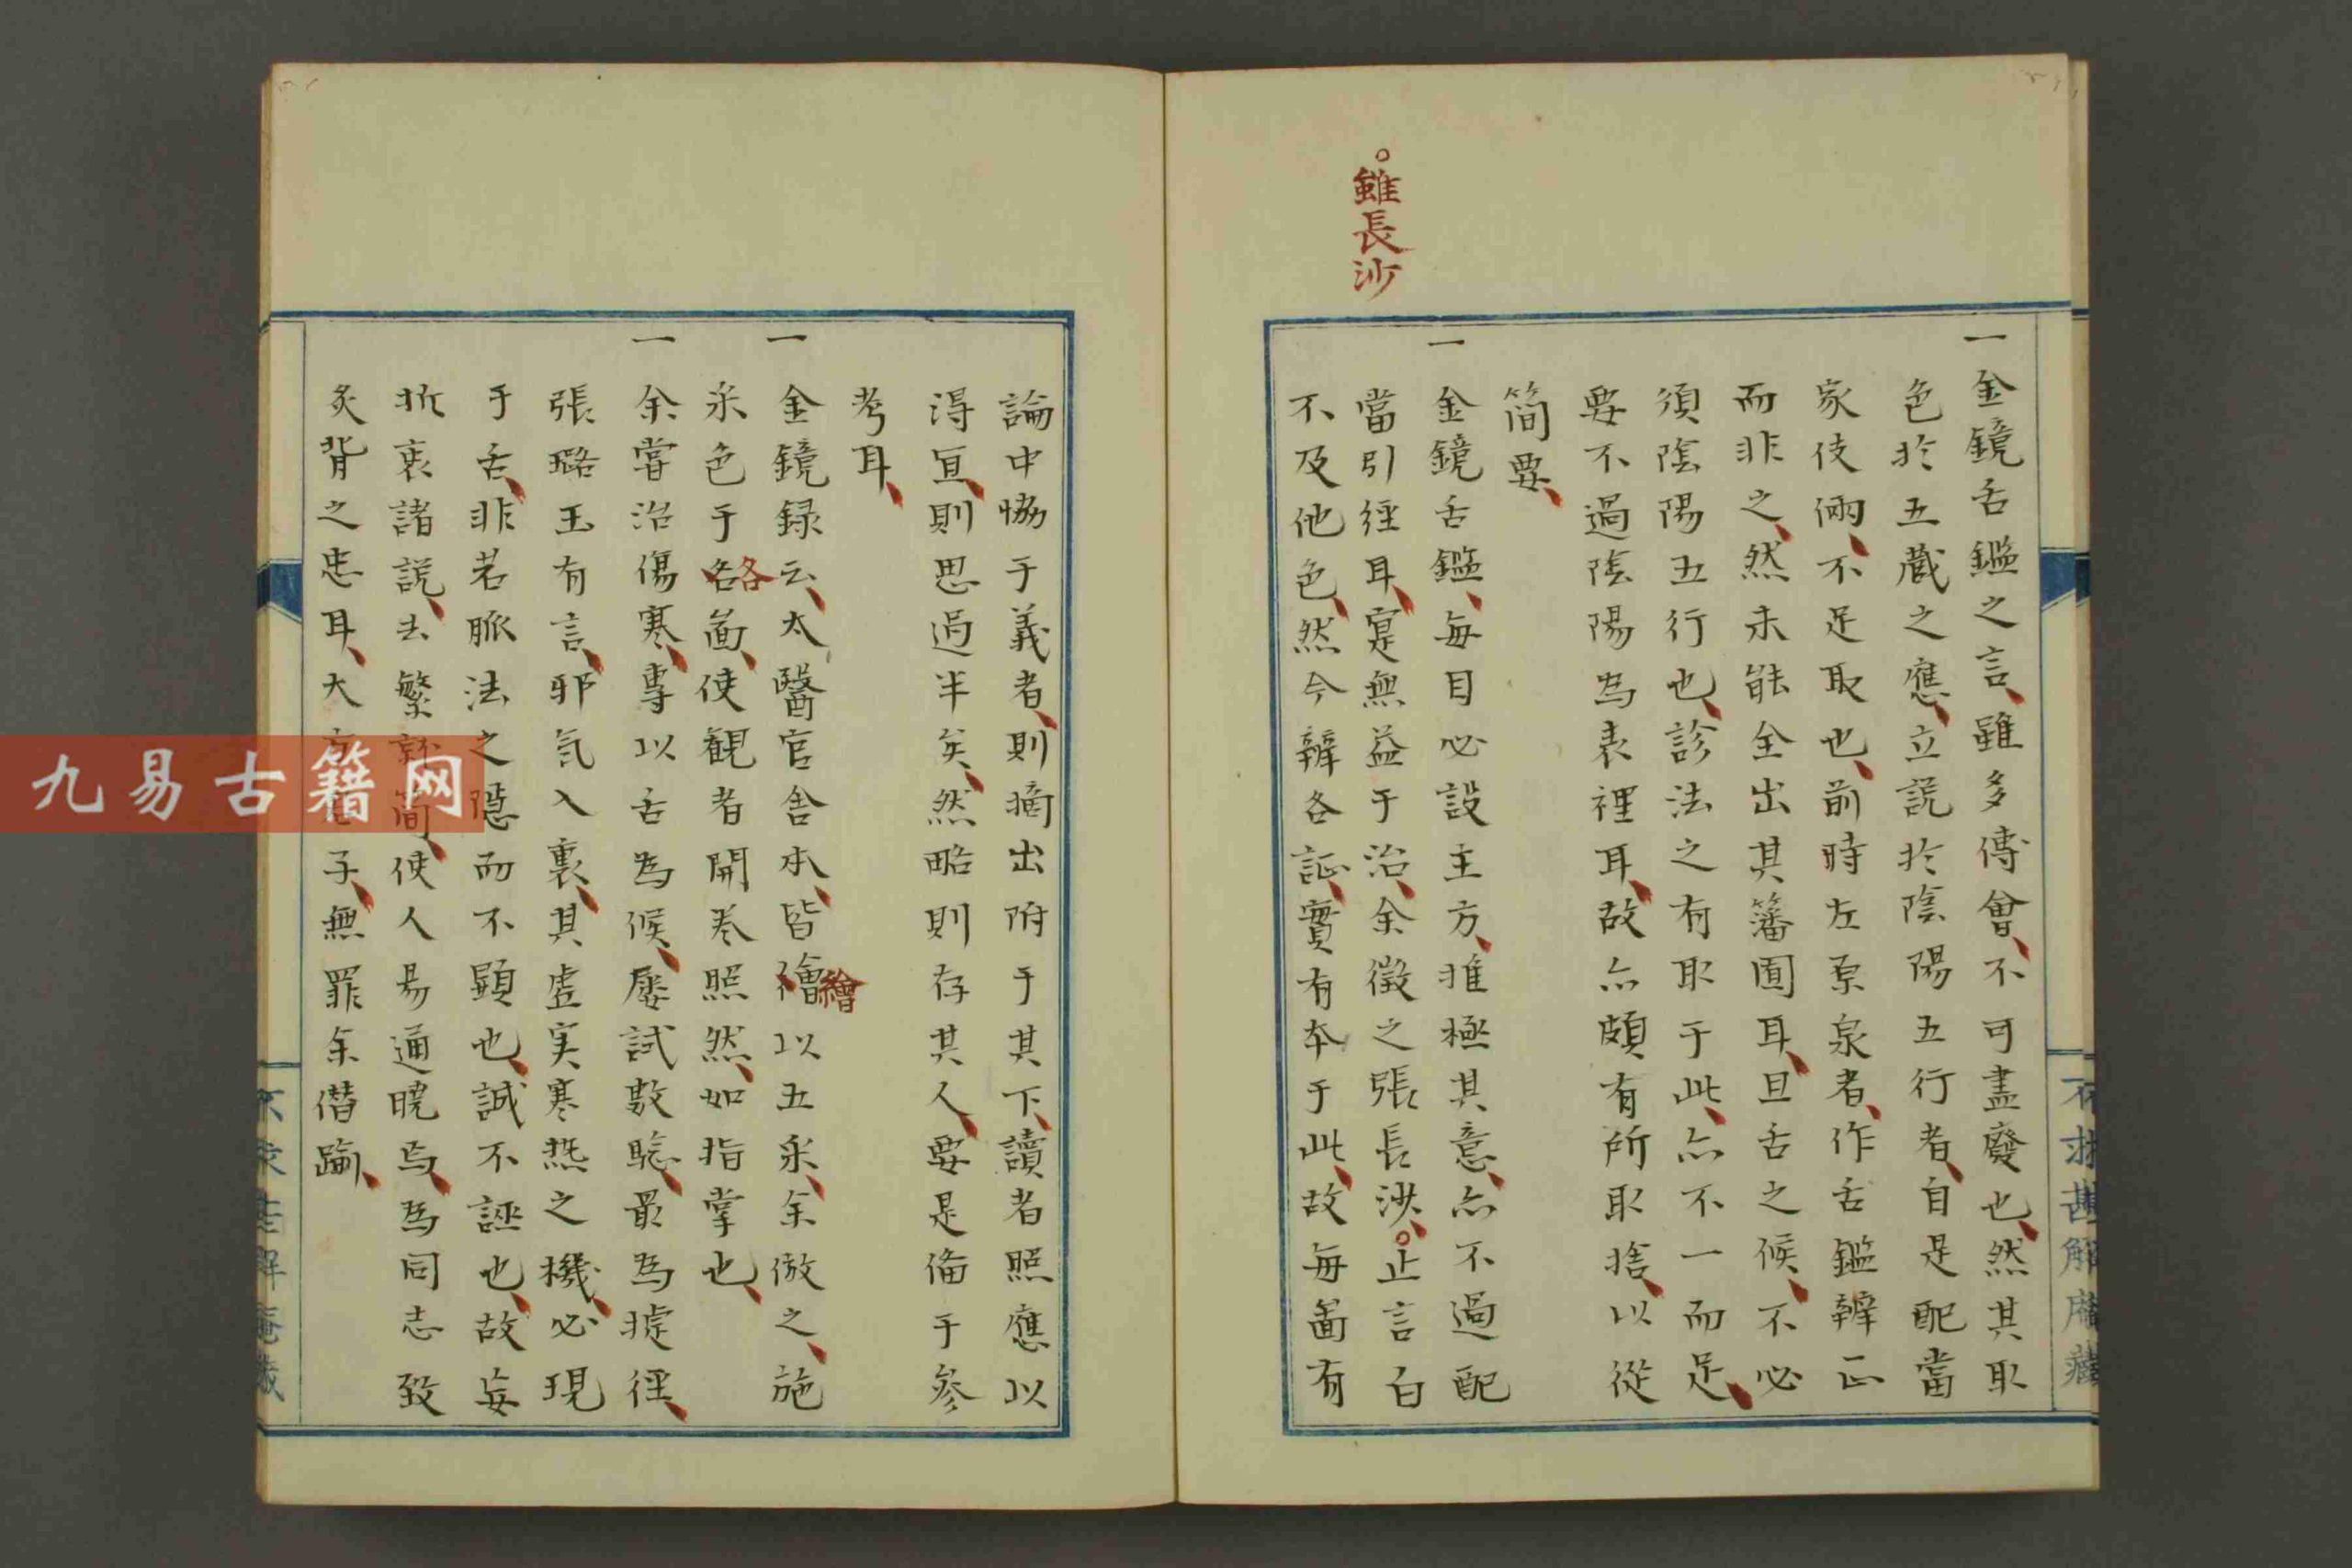 一金鏡舌鑑之言雖多傅會不可盡廢也然其取
色於五藏之應立説於陰陽五行者自是配當
家伎倆不足取也前時左原泉者作舌鑑辨正
而非之然未能全出其藩囿耳且舌之候不必
須陰陽五行也診法之有取于此亦不一而足
要不過陰陽為表裡耳故亦頗有所取捨以從
簡要
一金鏡舌鑑每目必設主方推極其意亦不過配
當引径耳寔無益于治余徵之張長沙。止言白
不及他色然今辨各証實有本于此故每啚有
。雖長沙
論中恊于義者則摘出附于其下讀者照應以
得宜則思過半矣然略則存其人要是俻于参
考耳
一金鏡録云太醫官舍本皆襘以五采余倣之施
繪
采色于名啚使観者開巻照然如指掌也
各
一余嘗治傷寒專以舌為候屡試数騐最為捷径
張璐玉有言邪気入裏其虚実寒熱之機必現
于舌非若脈法之隠而不顕也誠不誣也故妄
折衷諸説去繁就簡使人易通暁焉為同志致
炙背之忠耳大方君子無罪余僭踰
不求甚解庵藏
九易古籍网